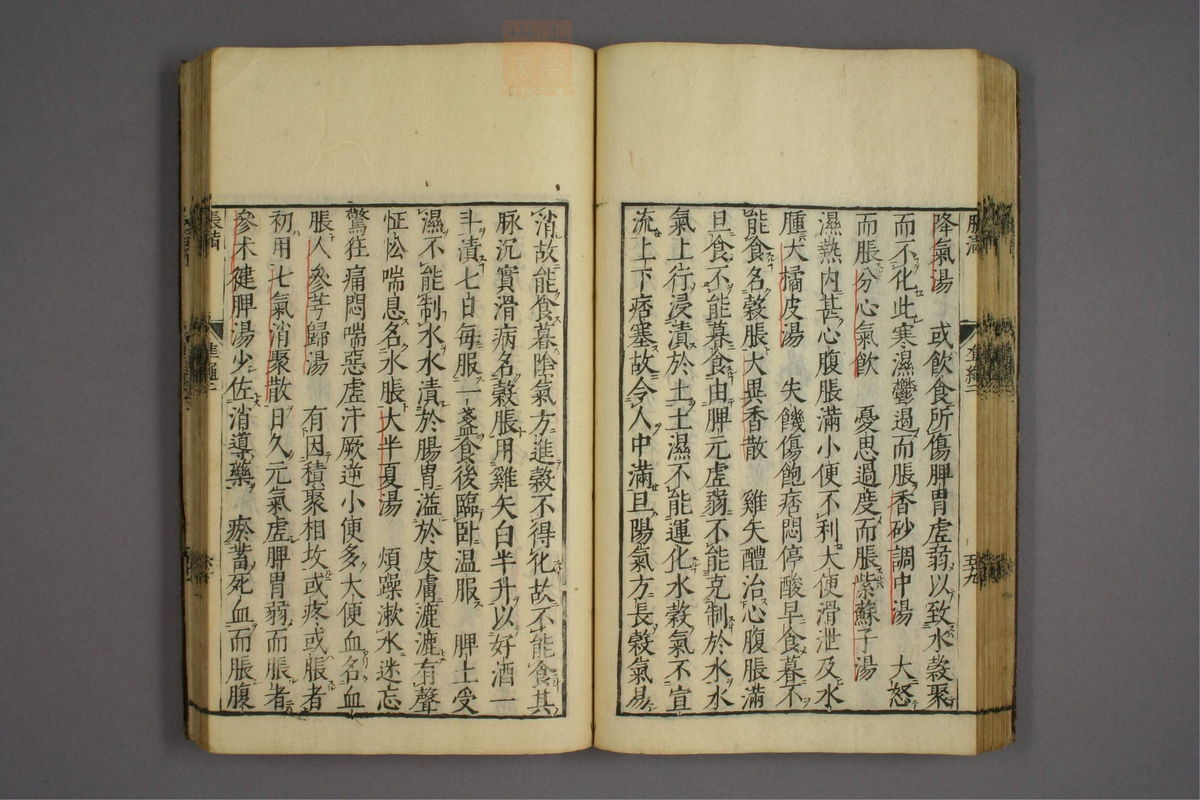 降氣湯　或飲食所傷脾胃虛弱以致水穀聚
而不化此寒濕鬱遏而脹香砂調中湯　大怒
而脹分心氣飲　憂思過度而脹紫蘇子湯
濕熱内甚心腹脹滿小便不利大便滑泄及水
腫大橘皮湯　失饑傷飽痞悶停酸早食暮不
能食名穀脹大異香散　雞矢醴治心腹脹滿
旦食不能暮食由脾元虛弱不能克制於水水
氣上行浸漬於土土濕不能運化水穀氣不宣
流上下痞塞故令人中滿旦陽氣方長穀氣易
消故能食暮陰氣方進穀不得化故不能食其
脉沉實滑病名穀脹用雞矢白半升以好酒一
斗漬七日每服一盞食後臨卧温服　脾土受
濕不能制水水漬於腸胃溢於皮膚漉漉有聲
怔忪喘息名水脹大半夏湯　煩躁漱水迷忘
驚狂痛悶喘惡虛汗厥逆小便多大便血名血
脹人參芎歸湯　有因積聚相攻或疼或脹者
初用七氣消聚散日久元氣虛脾胃弱而脹者
參术健脾湯少佐消導藥　瘀蓄死血而脹腹